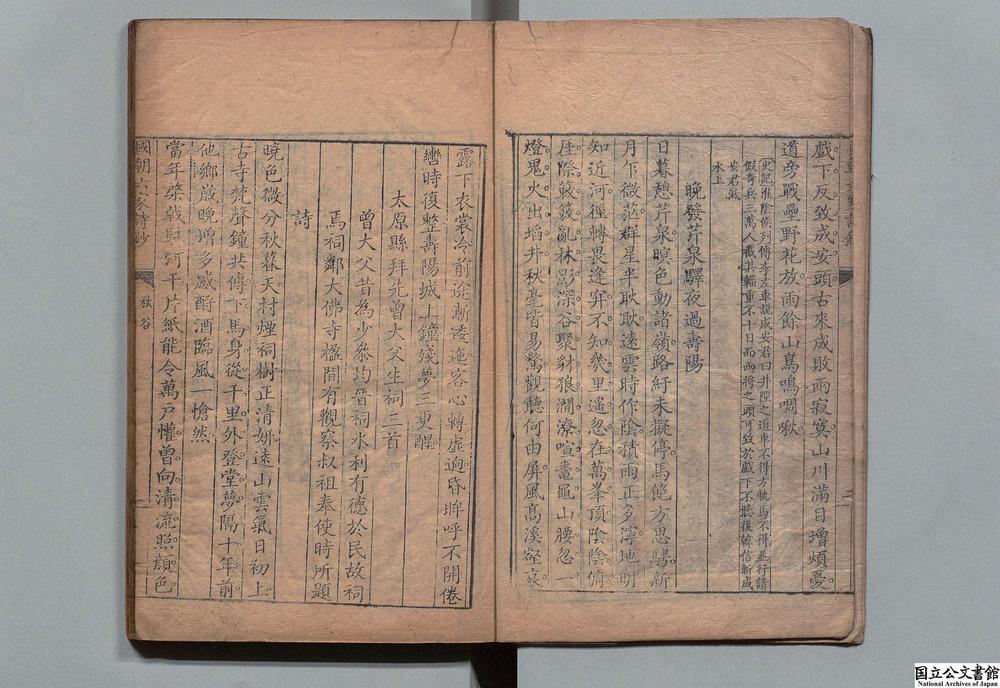 戲下反致成安頭古來成敗兩寂寞山川滿目增煩憂
道旁戰壘野花放雨餘山鳥鳴啁啾
史記淮陰侯列傳李左車說成安君曰井陘之道車不得方軌馬不得並行請
假奇兵三萬人截其輜重不十日而兩將之頭可致於戲下不聽後韓信斬成
安君泜
水上
晚發芹泉驛夜過壽陽
日暮憩芹泉暝色動諸嶺路紆未擬停馬飽方思騁新
月乍微茫群星半耿耿遠雲時作陰積雨正多濘地明
知近河徑轉畏逢穽不知幾里遙忽在萬峯頂陰陰俯
厓際簌簌亂林影深谷聚豺狼澗潦喧鼃黽山腰忽一
燈鬼火出塪井秋毫皆易驚觀聽何由屏風高溪壑哀
露下衣裳冷前途漸淩迤客心轉虛逈昏眸呼不開倦
轡時復整壽陽城上鐘殘夢三更醒
太原縣拜先曾大父生祠三首
曾大父昔為少叅均晉祠水利有德於民故祠
焉祠鄰大佛寺楹間有觀察叔祖奉使時所題
詩
曉色微分秋暮天村煙祠樹正清妍遠山雲氣日初上
古寺梵聲鐘共傳下馬身從千里外登堂夢隔十年前
他鄉歲晚增多感酹酒臨風一愴然
當年棨戟駐河干片紙能令萬戶懽曾向清流照顏色
國朝六家詩鈔
秋谷
国立公文書館
National Archives of Japan